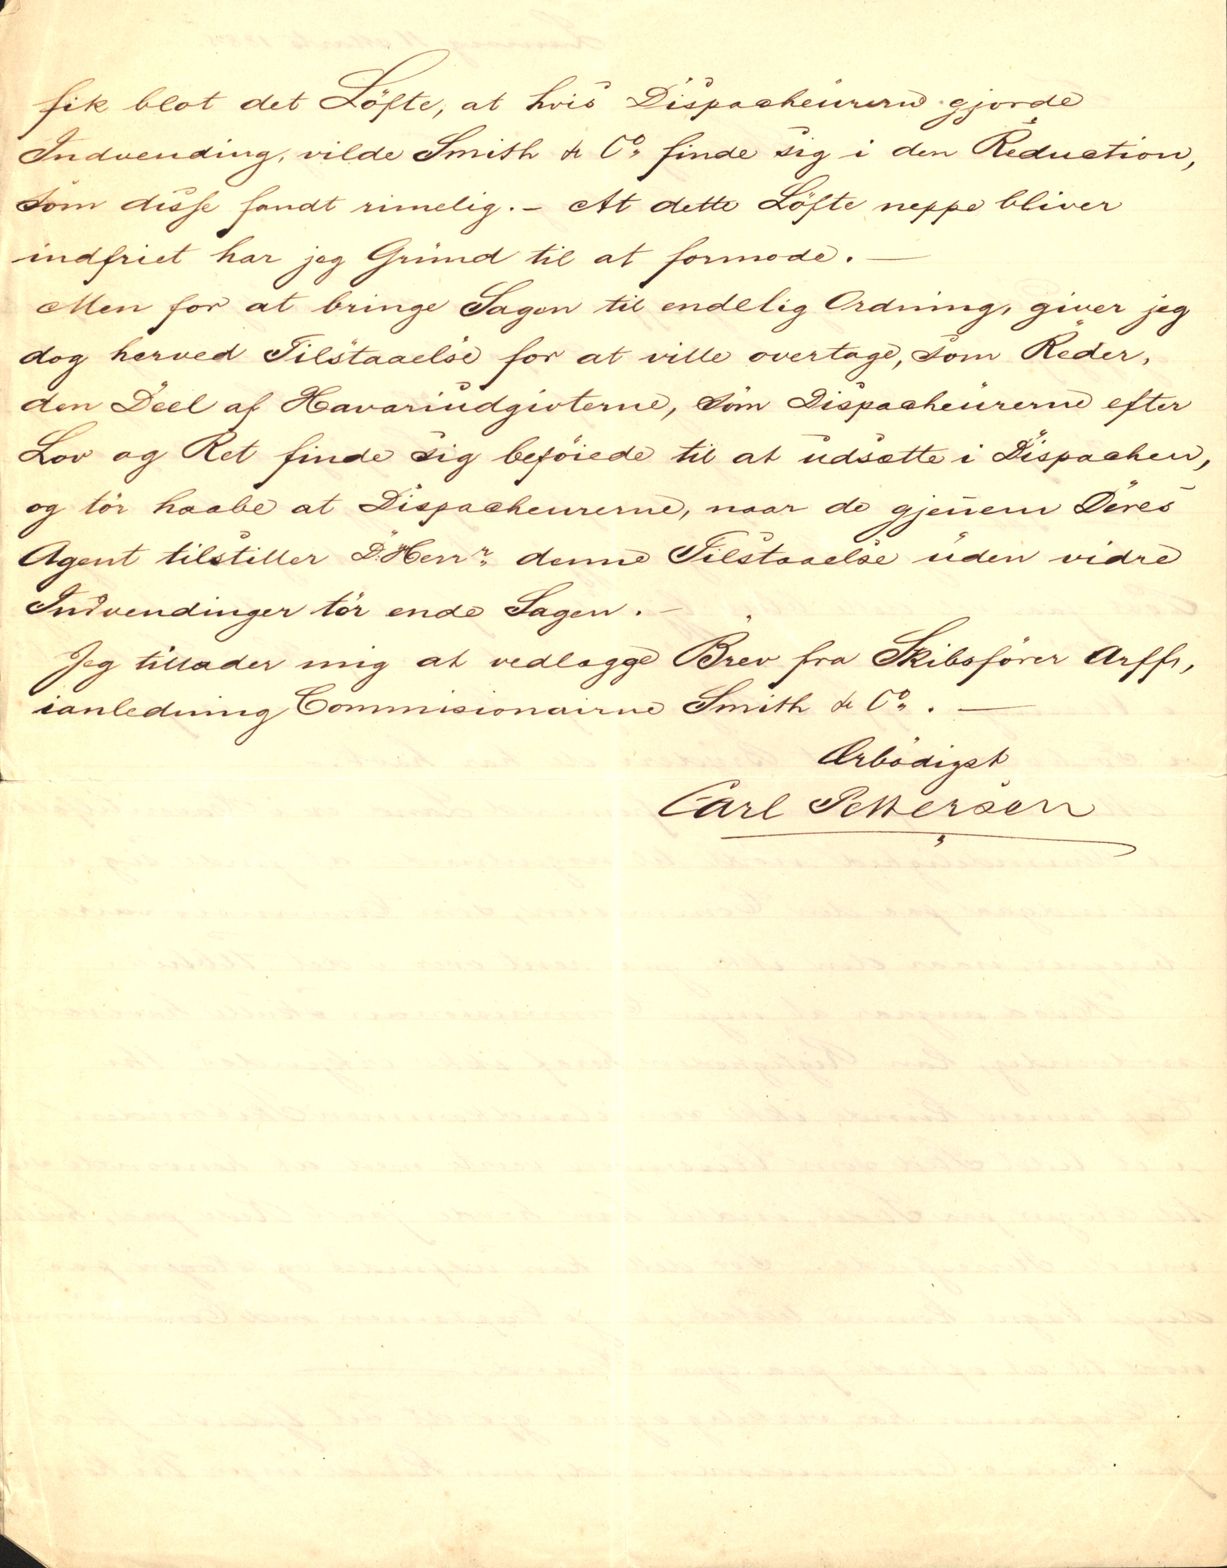 fik blot det Löfte, at hvis Dispacheurerne gjorde
Indvending, vilde Smith & Co. finde sig i den Reduction,
som disse fandt rimelig. – At dette Löfte neppe bliver
indfriet har jeg Grund til at formode. —
Men for at bringe Sagen til endelig Ordning, giver jeg
dog herved Tilstaaelse for at ville overtage, som Reder,
den Deel af Havariudgivterne, som Dispacheurerne efter
Lov og Ret finde sig beföiede til at udsætte i Dispachen,
og tör haabe at Dispacheurerne, naar de gjenem Deres
Agent tilstiller D'Herrr. denne Tilstaaelse uden vidre
Indvendinger tör ende Sagen. –
Jeg tillader mig at vedlægge Brev fra Skibsförer
ianledning Commisionairne Smith & Co. . —
Ærbödigst
Carl Pettersen